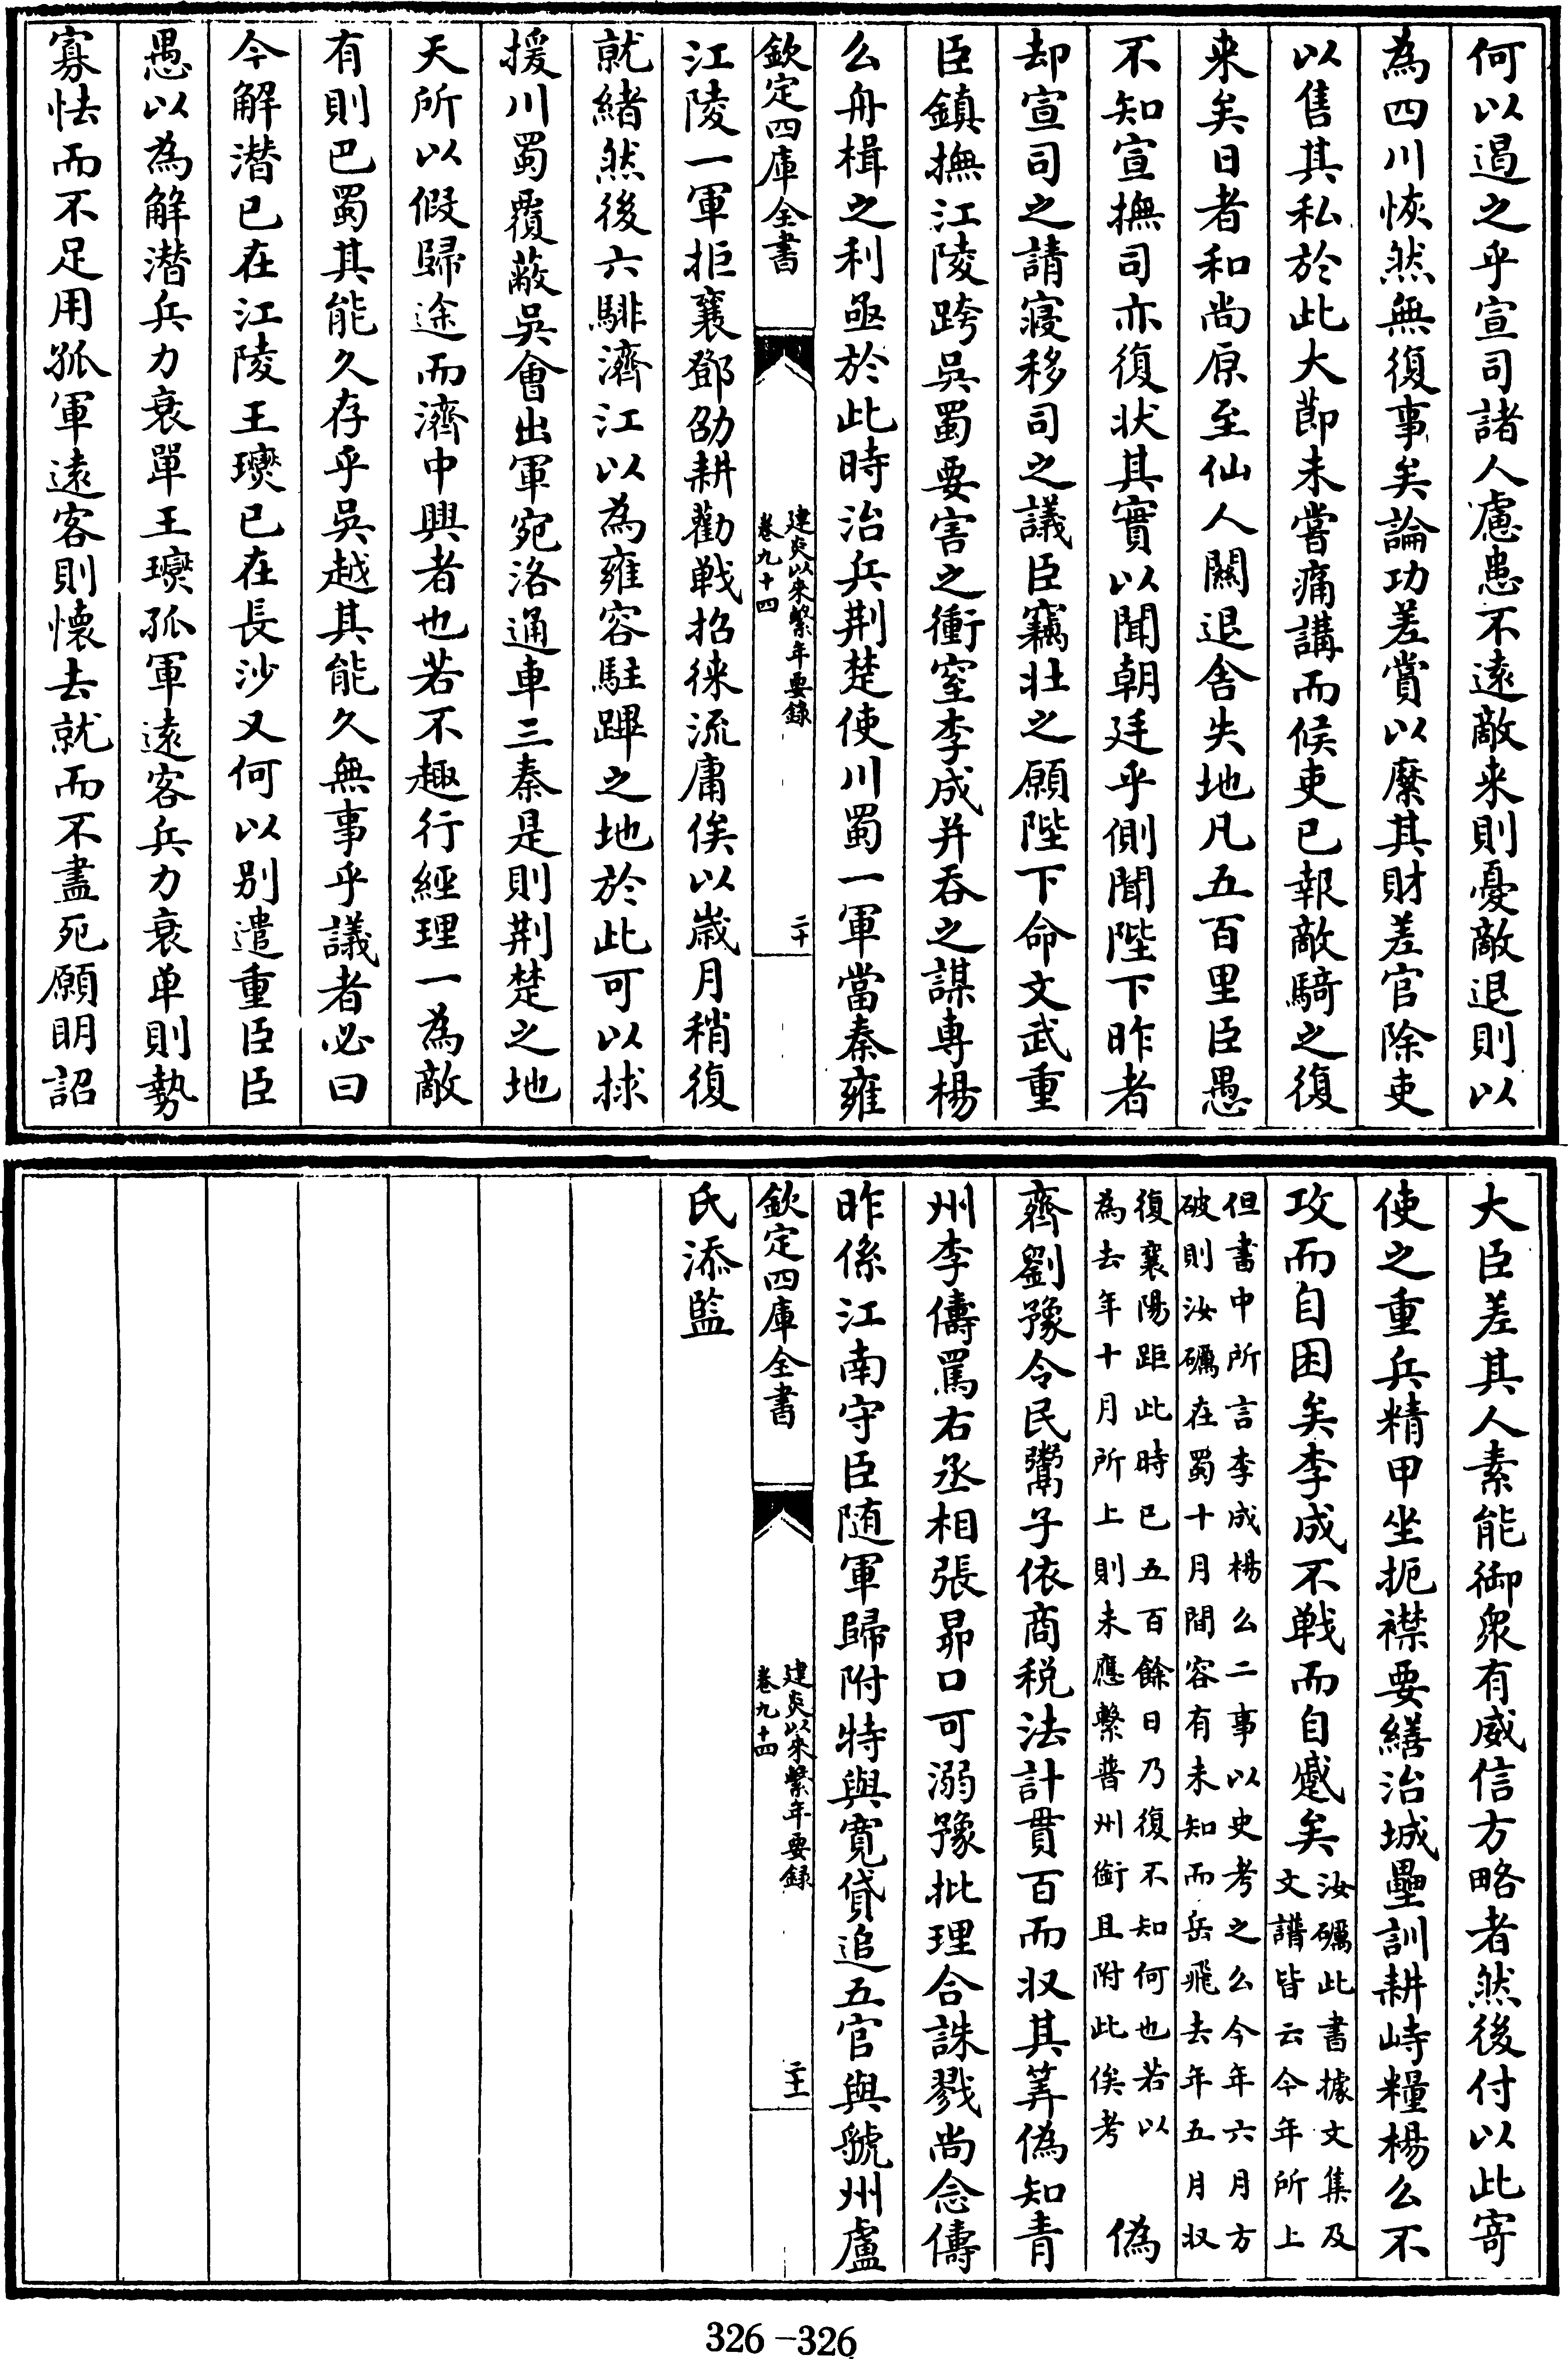 何以遏之乎宣司諸人慮患不遠敵来則憂敵退則以
為四川恢然無復事矣論功差賞以縻其財差官除吏
以售其私於此大節未嘗痛講而候吏已報敵騎之復
来矣日者和尚原至仙人關退舍失地凡五百里臣愚
不知宣撫司亦復状其實以聞朝廷乎側聞陛下昨者
却宣司之請寢移司之議臣竊壮之願陛下命文武重
臣鎮撫江陵跨吳蜀要害之衝窒李成并吞之謀專楊
么舟楫之利亟於此時治兵荆楚使川蜀一軍當秦雍
欽定四庫全書
建炎以來繫年要錄
卷九十四
二十
江陵一軍拒襄鄧劭耕勸戦招徠流庸俟以歲月稍復
就緒然後六騑濟江以為雍容駐蹕之地於此可以捄
援川蜀覆蔽吳會出軍宛洛通車三秦是則荆楚之地
天所以假歸途而濟中興者也若不趣行經理一為敵
有則巴蜀其能久存乎吳越其能久無事乎議者必曰
今解潛已在江陵王𤫉已在長沙又何以別遣重臣臣
愚以為解潛兵力衰單王𤫉孤軍遠客兵力衰単則勢
寡怯而不足用孤軍遠客則懷去就而不盡死願明詔
大臣差其人素能御衆有威信方略者然後付以此寄
使之重兵精甲坐扼襟要繕治城壘訓耕峙糧楊么不
攻而自困矣李成不戦而自蹙矣
汝礪此書據文集及
文譜皆云今年所上
但書中所言李成楊么二事以史考之么今年六月方
破則汝礪在蜀十月間容有未知而岳飛去年五月収
復襄陽距此時已五百餘日乃復不知何也若以
為去年十月所上則未應繫普州銜且附此俟考
偽
齊劉豫令民鬻子依商税法計貫百而収其筭偽知青
州李儔罵右丞相張昴口可溺豫批理合誅戮尚念儔
昨係江南守臣随軍歸附特與寬貸追五官與虢州盧
欽定四庫全書
建炎以來繫年要錄
卷九十四
二十一
氏添監
326-326